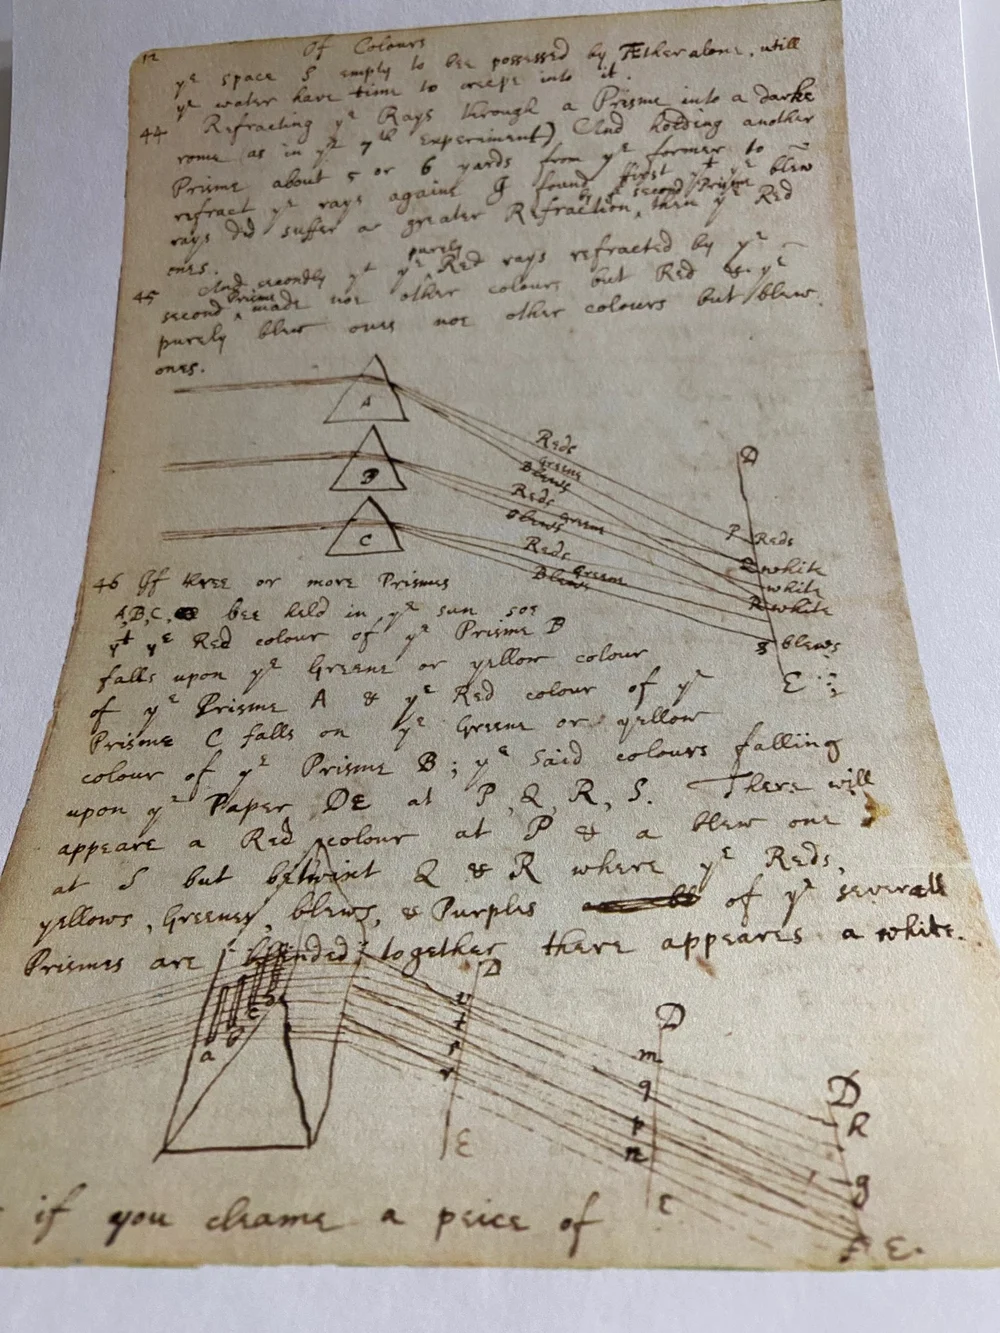 12 Of Colours
yᵉ space S empty to bee possessed by Æther alone, untill
yᵉ water have time to creepe into it.
44 Refracting yᵉ Rays through a Prisme into a darke
rome (as in yᵉ 7th Experiment) And holding another
Prisme about 5 or 6 yards from yᵉ former to
refract yᵉ rays againe I found first yᵗ yᵉ blew
rays did suffer a greater Refraction by yᵉ second Prisme, then yᵉ Red
ones.
45 And secondly yᵗ yᵉ purely Red rays refracted by yᵉ
second Prisme made noe other colours but Red & yᵉ
purely blew ones noe other colours but blew
ones.
A
B
C
Reds
Greene
Blews
Reds
Greene
blews
Reds
Greene
Blews
D
P Reds
Q white
white
R white
S blews
E
46 If three or more Prismes
A, B, C, bee held in yᵉ sun soe
yᵗ yᵉ Red colour of yᵉ Prisme B
falls upon yᵉ Greene or yellow colour
of yᵉ Prisme A & yᵉ Red colour of yᵉ
Prisme C falls on yᵉ Greene or yellow
colour of yᵉ Prisme B; yᵉ said colours falling
upon yᵉ Paper DE at P, Q, R, S. There will
appeare a Red colour at P & a blew one
at S but betwixt Q & R where yᵉ Reds,
yellows, Greenes, blews, & Purples of yᵉ severall
Prismes are blended together there appeares a white.
a
b
c
D
v
t
s
r
E
D
m
q
p
n
E
D
R
g
E.
if you cleame a peice of